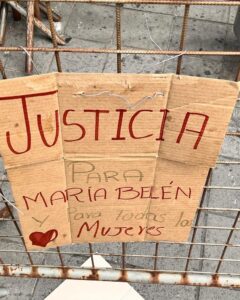 JUSTICIA
PARA
MARÍA BELÉN
y Para todas las
MUJERES